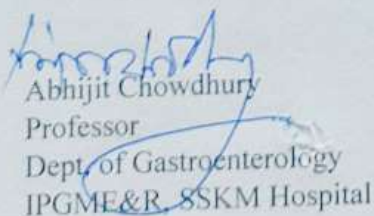 Abhijit Chowdhury
Professor
Dept. of Gastroenterology
IPGME&R, SSKM Hospital